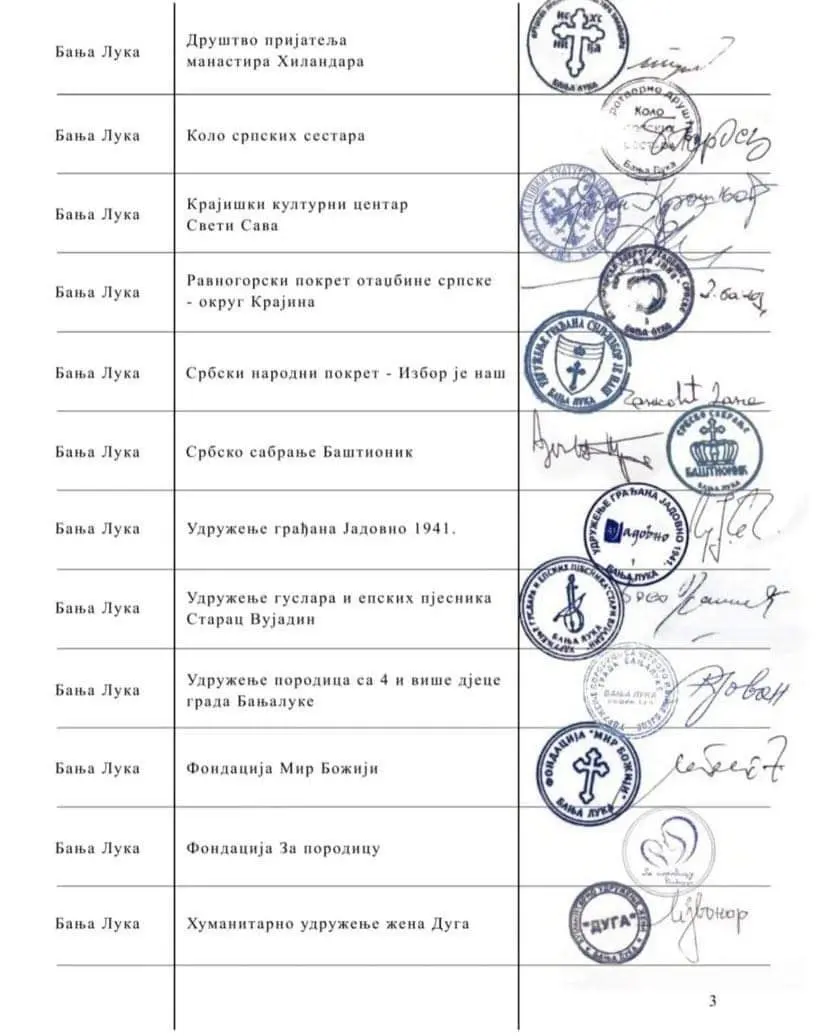 Бања Лука
Друштво пријатеља
манастира Хиландара
БАЊА ЛУКА
Бања Лука
Коло српских сестара
Коло
Бања Лука
Бања Лука
Крајишки културни центар
Свети Сава
Бања Лука
Равногорски покрет отаџбине српске
- округ Крајина
БАЊА ЛУКА
Бања Лука
Србски народни покрет - Избор је наш
БАЊА ЛУКА
Бања Лука
Србско сабрање Баштионик
СРБСКО САБРАЊЕ
БАШТИОНИК
БАЊА ЛУКА
Бања Лука
Удружење грађана Јадовно 1941.
УДРУЖЕЊЕ ГРАЂАНА ЈАДОВНО 1941.
Јадовно
1
БАЊА ЛУКА
Бања Лука
Удружење гуслара и епских пјесника
Старац Вујадин
БАЊА ЛУКА
Бања Лука
Удружење породица са 4 и више дјеце
града Бањалуке
БАЊА ЛУКА
Бања Лука
Фондација Мир Божији
ФОНДАЦИЈА "МИР БОЖИЈИ"
БАЊА ЛУКА
Бања Лука
Фондација За породицу
За породицу
Бања Лука
Хуманитарно удружење жена Дуга
"ДУГА"
БАЊА ЛУКА
3